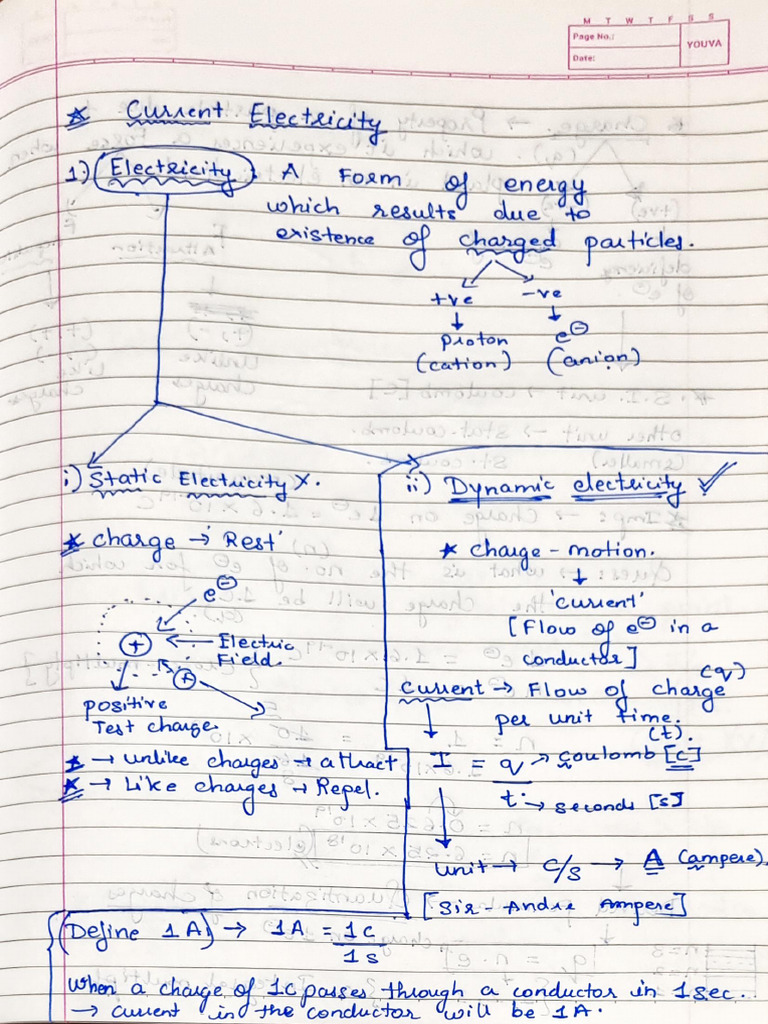 M T W T F S S
Page No.:
Date:
YOUVA
* Current Electricity
1) Electricity : A Form of energy
which results due to
existence of charged particles.
+ve -ve
↓ ↓
proton e⊖
(cation) (anion)
i) Static Electricity ×.
* charge → 'Rest'
e⊖
⊕ ← Electric
Field.
⊕
positive
Test charge.
* → unlike charges → attract
* → Like charges → Repel.
ii) Dynamic electricity ✓
* charge - motion.
↓
'current'
[Flow of e⊖ in a
conductor]
current → Flow of charge (q)
per unit time.
(t).
I = q → coulomb [c]
t → seconds [s]
unit → c/s → A (ampere)
[Sir - Andre Ampere]
(Define 1A) → 1A = 1c
1s
When a charge of 1c passes through a conductor in 1sec.
→ current in the conductor will be 1A.